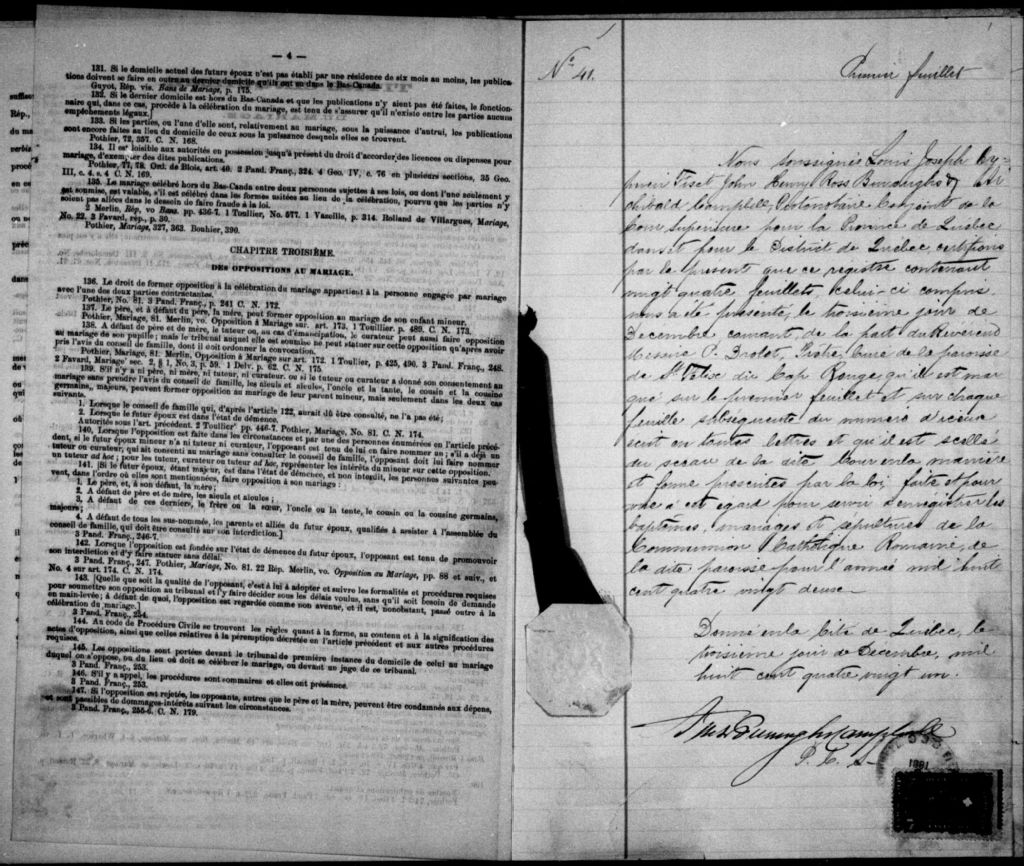 — 4 —
131. Si le domicile actuel des futurs époux n'est pas établi par une résidence de six mois au moins, les publica-
tions doivent se faire en outre au dernier domicile qu'ils ont eu dans le Bas-Canada.
Guyot, Rép. vis. Bans de Mariage, p. 175.
132. Si le dernier domicile est hors du Bas-Canada et que les publications n'y aient pas été faites, le fonction-
naire qui, dans ce cas, procède à la célébration du mariage, est tenu de s'assurer qu'il n'existe entre les parties aucuns
empêchements légaux.]
133. Si les parties, ou l'une d'elle sont, relativement au mariage, sous la puissance d'autrui, les publications
sont encore faites au lieu du domicile de ceux sous la puissance desquels elles se trouvent.
Pothier, 72, 357. C. N. 168.
134. Il est loisible aux autorités en possession jusqu'à présent du droit d'accorder des licences ou dispenses pour
mariage, d'exempter des dites publications.
Pothier, 77, 78. Ord. de Blois, art. 40. 2 Pand. Franç., 324. 4 Geo. IV, c. 76 en plusieurs sections, 35 Geo.
III, c. 4. s. 4 C. N. 169.
135. Le mariage célébré hors du Bas-Canada entre deux personnes sujettes à ses lois, ou dont l'une seulement y
est soumise, est valable, s'il est célébré dans les formes usitées au lieu de la célébration, pourvu que les parties n'y
soient pas allées dans le dessein de faire fraude à la loi.
2 Merlin, Rép. vo Bans. pp. 436-7. 1 Toullier, No. 577. 1 Vazeille, p. 314. Rolland de Villargues, Mariage,
No. 22. 3 Favard, rép., p. 30.
Pothier, Mariage, 327, 363. Bouhier, 390.
CHAPITRE TROISIÈME.
DES OPPOSITIONS AU MARIAGE.
136. Le droit de former opposition à la célébration du mariage appartient à la personne engagée par mariage
avec l'une des deux parties contractantes.
Pothier, No. 81. 3 Pand. Franç., p. 241 C. N. 172.
137. Le père, et à défaut du père, la mère, peut former opposition au mariage de son enfant mineur.
Pothier, Mariage, 81. Merlin, vo. Opposition à Mariage sur. art. 173, 1 Touillier. p. 489. C. N. 173.
138. A défaut de père et de mère, le tuteur ou, au cas d'émancipation, le curateur peut aussi faire opposition
au mariage de son pupille; mais le tribunal auquel elle est soumise ne peut statuer sur cette opposition qu'après avoir
pris l'avis du conseil de famille, dont il doit ordonner la convocation.
Pothier, Mariage, 81. Merlin, Opposition à Mariage sur art. 172. 1 Toullier, p. 425, 490. 3 Pand. Franç., 248.
2 Favard, Mariage sec. 2, § 1, No. 3, p. 59. 1 Delv. p. 62. C. N. 175.
139. S'il n'y a ni père, ni mère, ni tuteur, ni curateur, ou si le tuteur ou curateur a donné son consentement au
mariage sans prendre l'avis du conseil de famille, les aïeuls et aïeules, l'oncle et la tante, le cousin et la cousine
germains, majeurs, peuvent former opposition au mariage de leur parent mineur, mais seulement dans les deux cas
suivants.
1. Lorsque le conseil de famille qui, d'après l'article 122, aurait dû être consulté, ne l'a pas été;
2. Lorsque le futur époux est dans l'état de démence.
Autorités sous l'art. précédent. 2 Toullier' pp. 446-7. Pothier, Mariage, No. 81. C. N. 174.
140. Lorsque l'opposition est faite dans les circonstances et par une des personnes énumérées en l'article précé-
dent, si le futur époux mineur n'a ni tuteur ni curateur, l'opposant est tenu de lui en faire nommer un; s'il a déjà un
tuteur ou curateur, qui ait consenti au mariage sans consulter le conseil de famille, l'opposant doit lui faire nommer
un tuteur ad hoc; pour les tuteur, curateur ou tuteur ad hoc, représenter les intérêts du mineur sur cette opposition.
141. [Si le futur époux, étant majeur, est dans l'état de démence, et non interdit, les personnes suivantes peu-
vent, dans l'ordre où elles sont mentionnées, faire opposition à son mariage:
1. Le père, et, à son défaut, la mère;
2. A défaut de père et de mère, les aïeuls et aïeules;
3. A défaut de ces derniers, le frère ou la sœur, l'oncle ou la tante, le cousin ou la cousine germains,
majeurs;
4. A défaut de tous les sus-nommés, les parents et alliés du futur époux, qualifiés à assister à l'assemblée du
conseil de famille, qui doit être consulté sur son interdiction.]
3 Pand. Franç., 246-7.
142. Lorsque l'opposition est fondée sur l'état de démence du futur époux, l'opposant est tenu de promouvoir
son interdiction et d'y faire statuer sans délai.
3 Pand. Franç., 247. Pothier, Mariage, No. 81. 22 Rép. Merlin, vo. Opposition au Mariage, pp. 88 et suiv., et
No. 4 sur art 174. C. N. 174.
143. [Quelque soit la qualité de l'opposant, c'est à lui à adopter et suivre les formalités et procédures requises
pour soumettre son opposition au tribunal et l'y faire décider sous les délais voulus, sans qu'il soit besoin de demande
en main-levée; à défaut de quoi, l'opposition est regardée comme non avenue, et il est, nonobstant, passé outre à la
célébration du mariage.]
3 Pand. Franç., 254.
144. Au code de Procédure Civile se trouvent les règles quant à la forme, au contenu et à la signification des
actes d'opposition, ainsi que celles relatives à la péremption décrétée en l'article précédent et aux autres procédures
requises.
145. Les oppositions sont portées devant le tribunal de première instance du domicile de celui au mariage
duquel on s'oppose, ou du lieu où doit se célébrer le mariage, ou devant un juge de ce tribunal.
3 Pand. Franç., 253.
146. S'il y a appel, les procédures sont sommaires et elles ont préséance.
3 Pand. Franç., 253.
147. Si l'opposition est rejetée, les opposants, autres que le père et la mère, peuvent être condamnés aux dépens,
et sont passibles de dommages-intérêts suivant les circonstances.
3 Pand. Franç., 255-6. C. N. 179.
No. 41.
Premier feuillet
Nous soussignés Louis Joseph Cy-
prien Fiset John Henry Ross Burroughs & Ar-
chibald Campbell, Protonotaire Conjoint de la
Cour Supérieure pour la Province de Québec
dans et pour le District de Québec certifions
par le présent que ce registre contenant
vingt quatre feuillets, celui-ci compris
nous a été présenté, le troisième jour de
Décembre courant, de la part du Révérend
Messire P. Drolet, Prêtre, Curé de la paroisse
de St Félix du Cap Rouge, qu'il est mar
qué sur le premier feuillet et sur chaque
feuille subséquente du numéro d'icelui
écrit en toutes lettres et qu'il est scellé
du sceau de la dite Cour en la manière
et forme presentes par la loi, faite et pour
vue à cet égard pour servir à enregistrer les
baptêmes, mariages et sépultures de la
Communion Catholique Romaine, de
la dite paroisse pour l'année mil huit
cent quatre vingt deux—
Donné en la Cité de Québec, le
troisième jour de Décembre, mil
huit cent quatre vingt un.
Burroughs Campbell
P. C. S.
1881